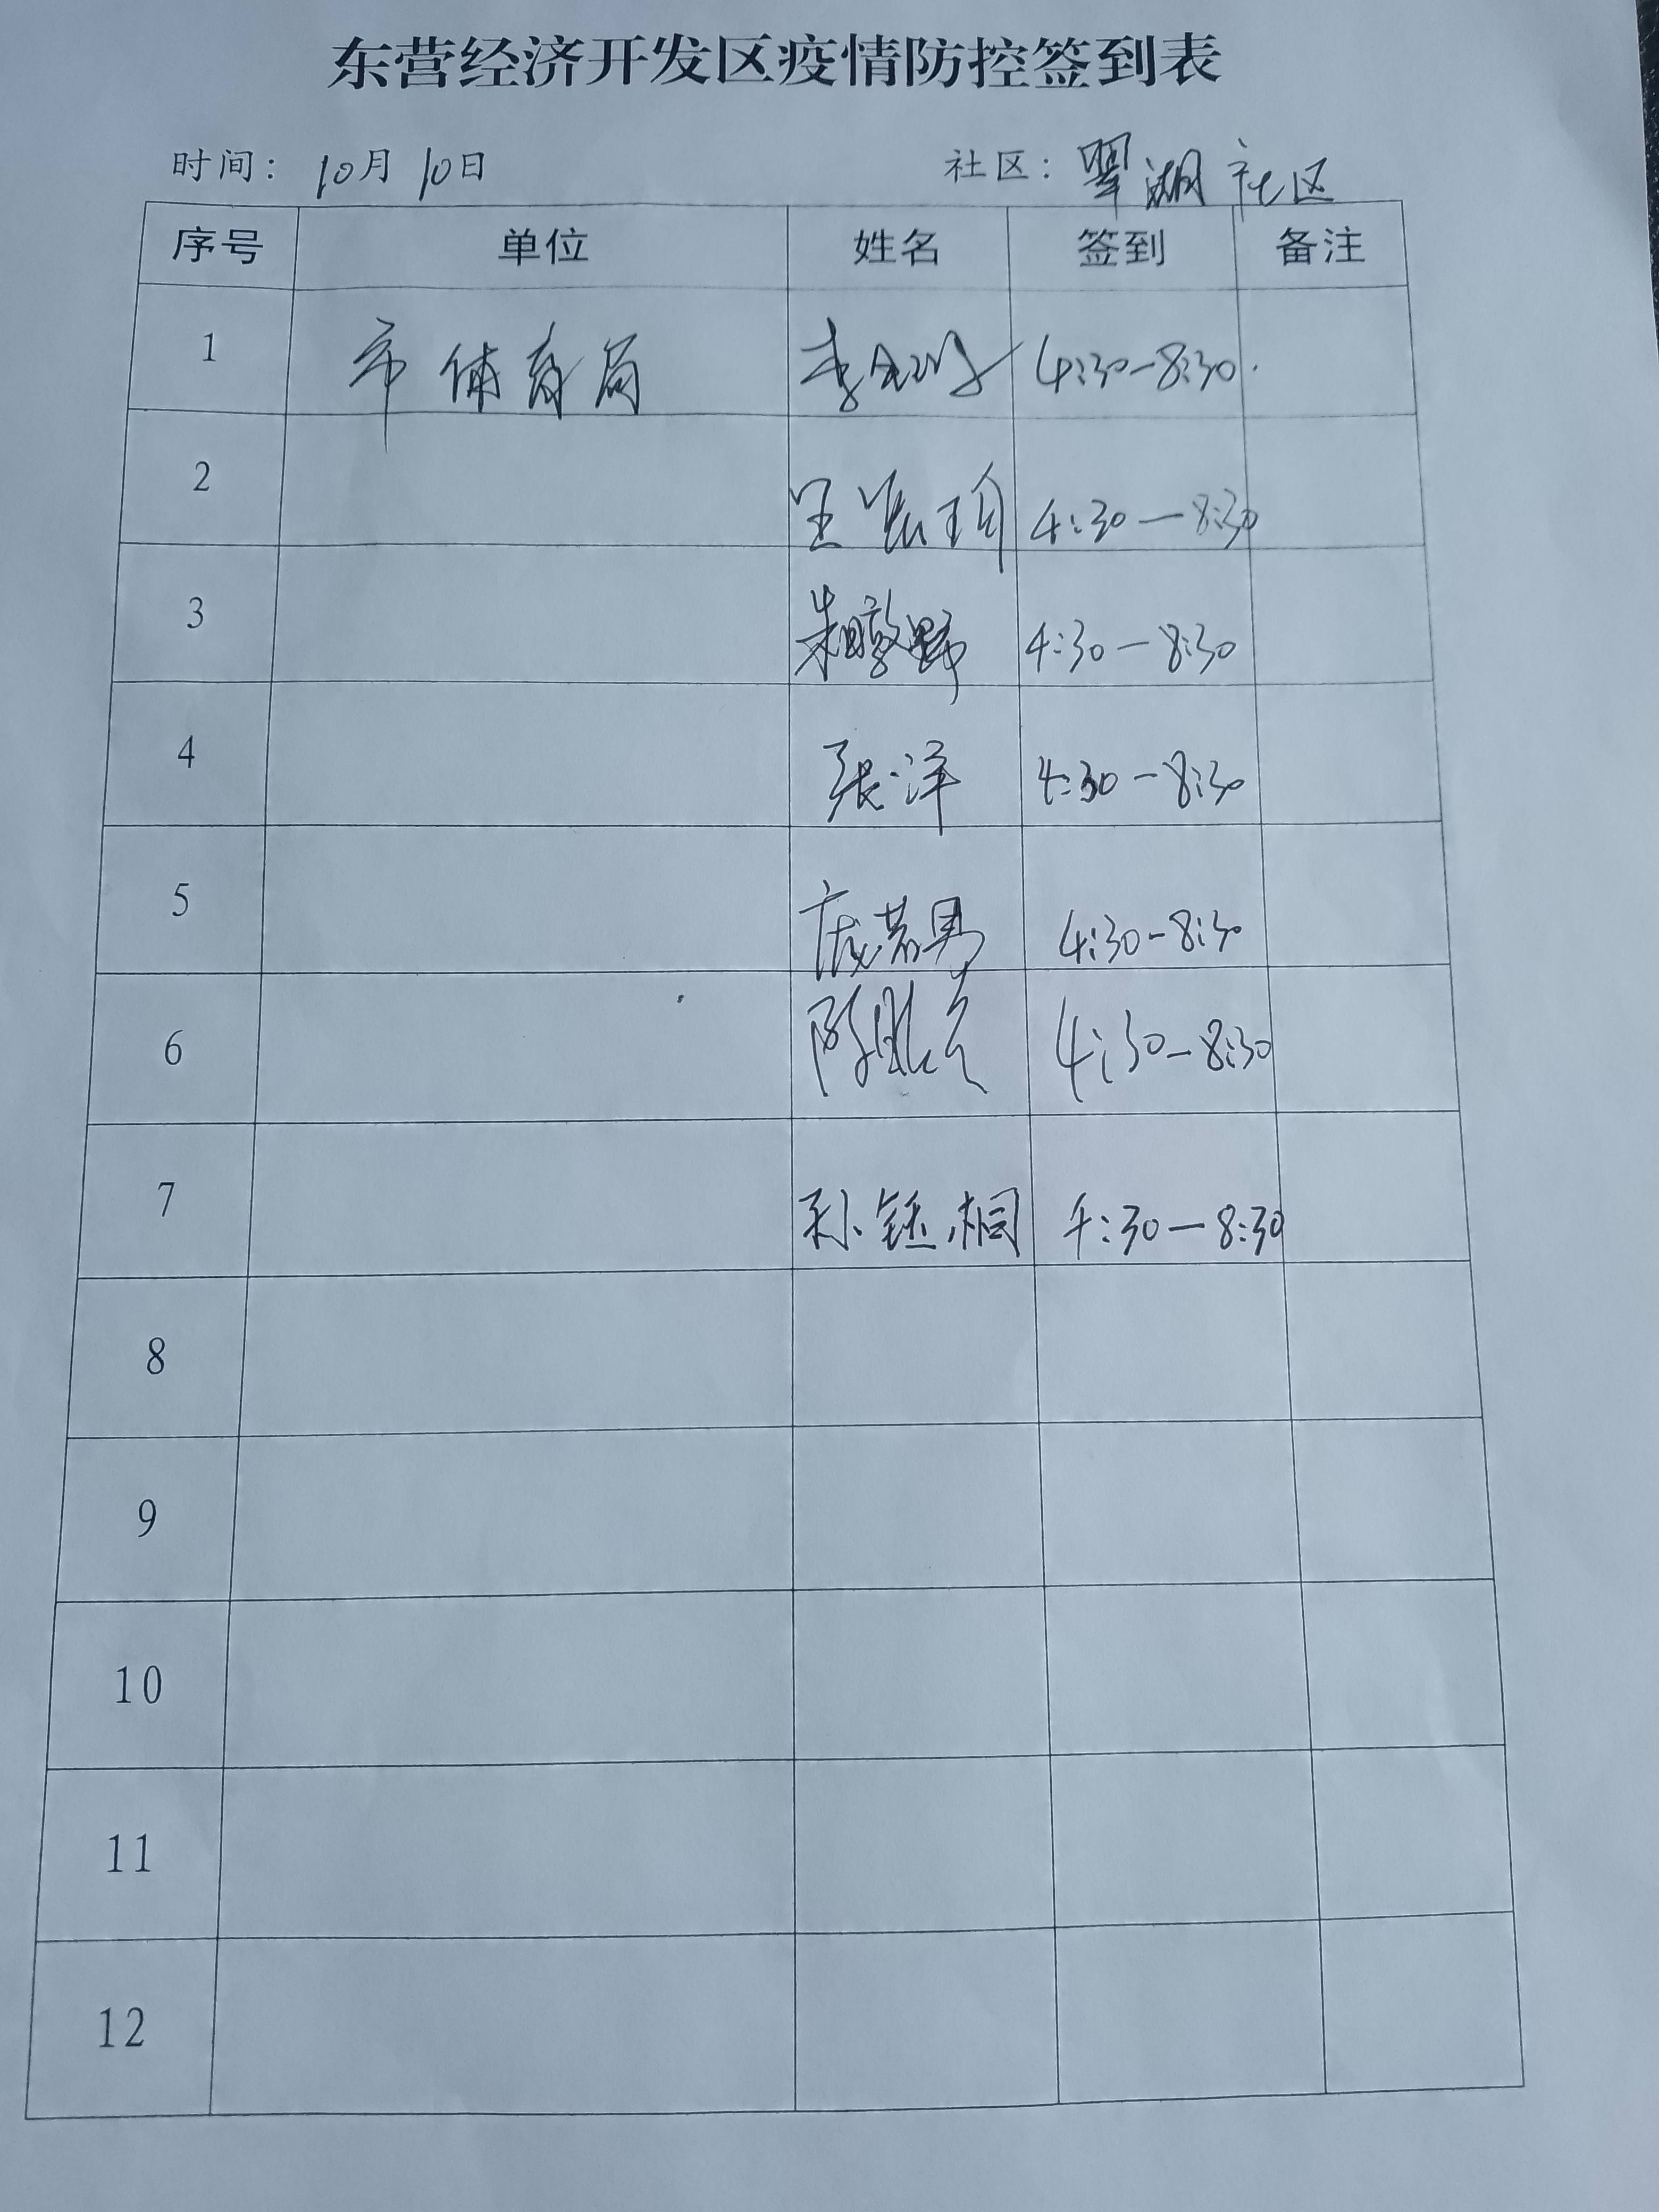 东营经济开发区疫情防控签到表
时间：10月10日 社区：翠湖社区
序号 单位 姓名 签到 备注
1 市体育局 李 4:30-8:30
2 王 4:30—8:30
3 4:30—8:30
4 张洋 4:30—8:30
5 庞若男 4:30-8:30
6 陈 4:30-8:30
7 孙钰桐 4:30—8:30
8
9
10
11
12